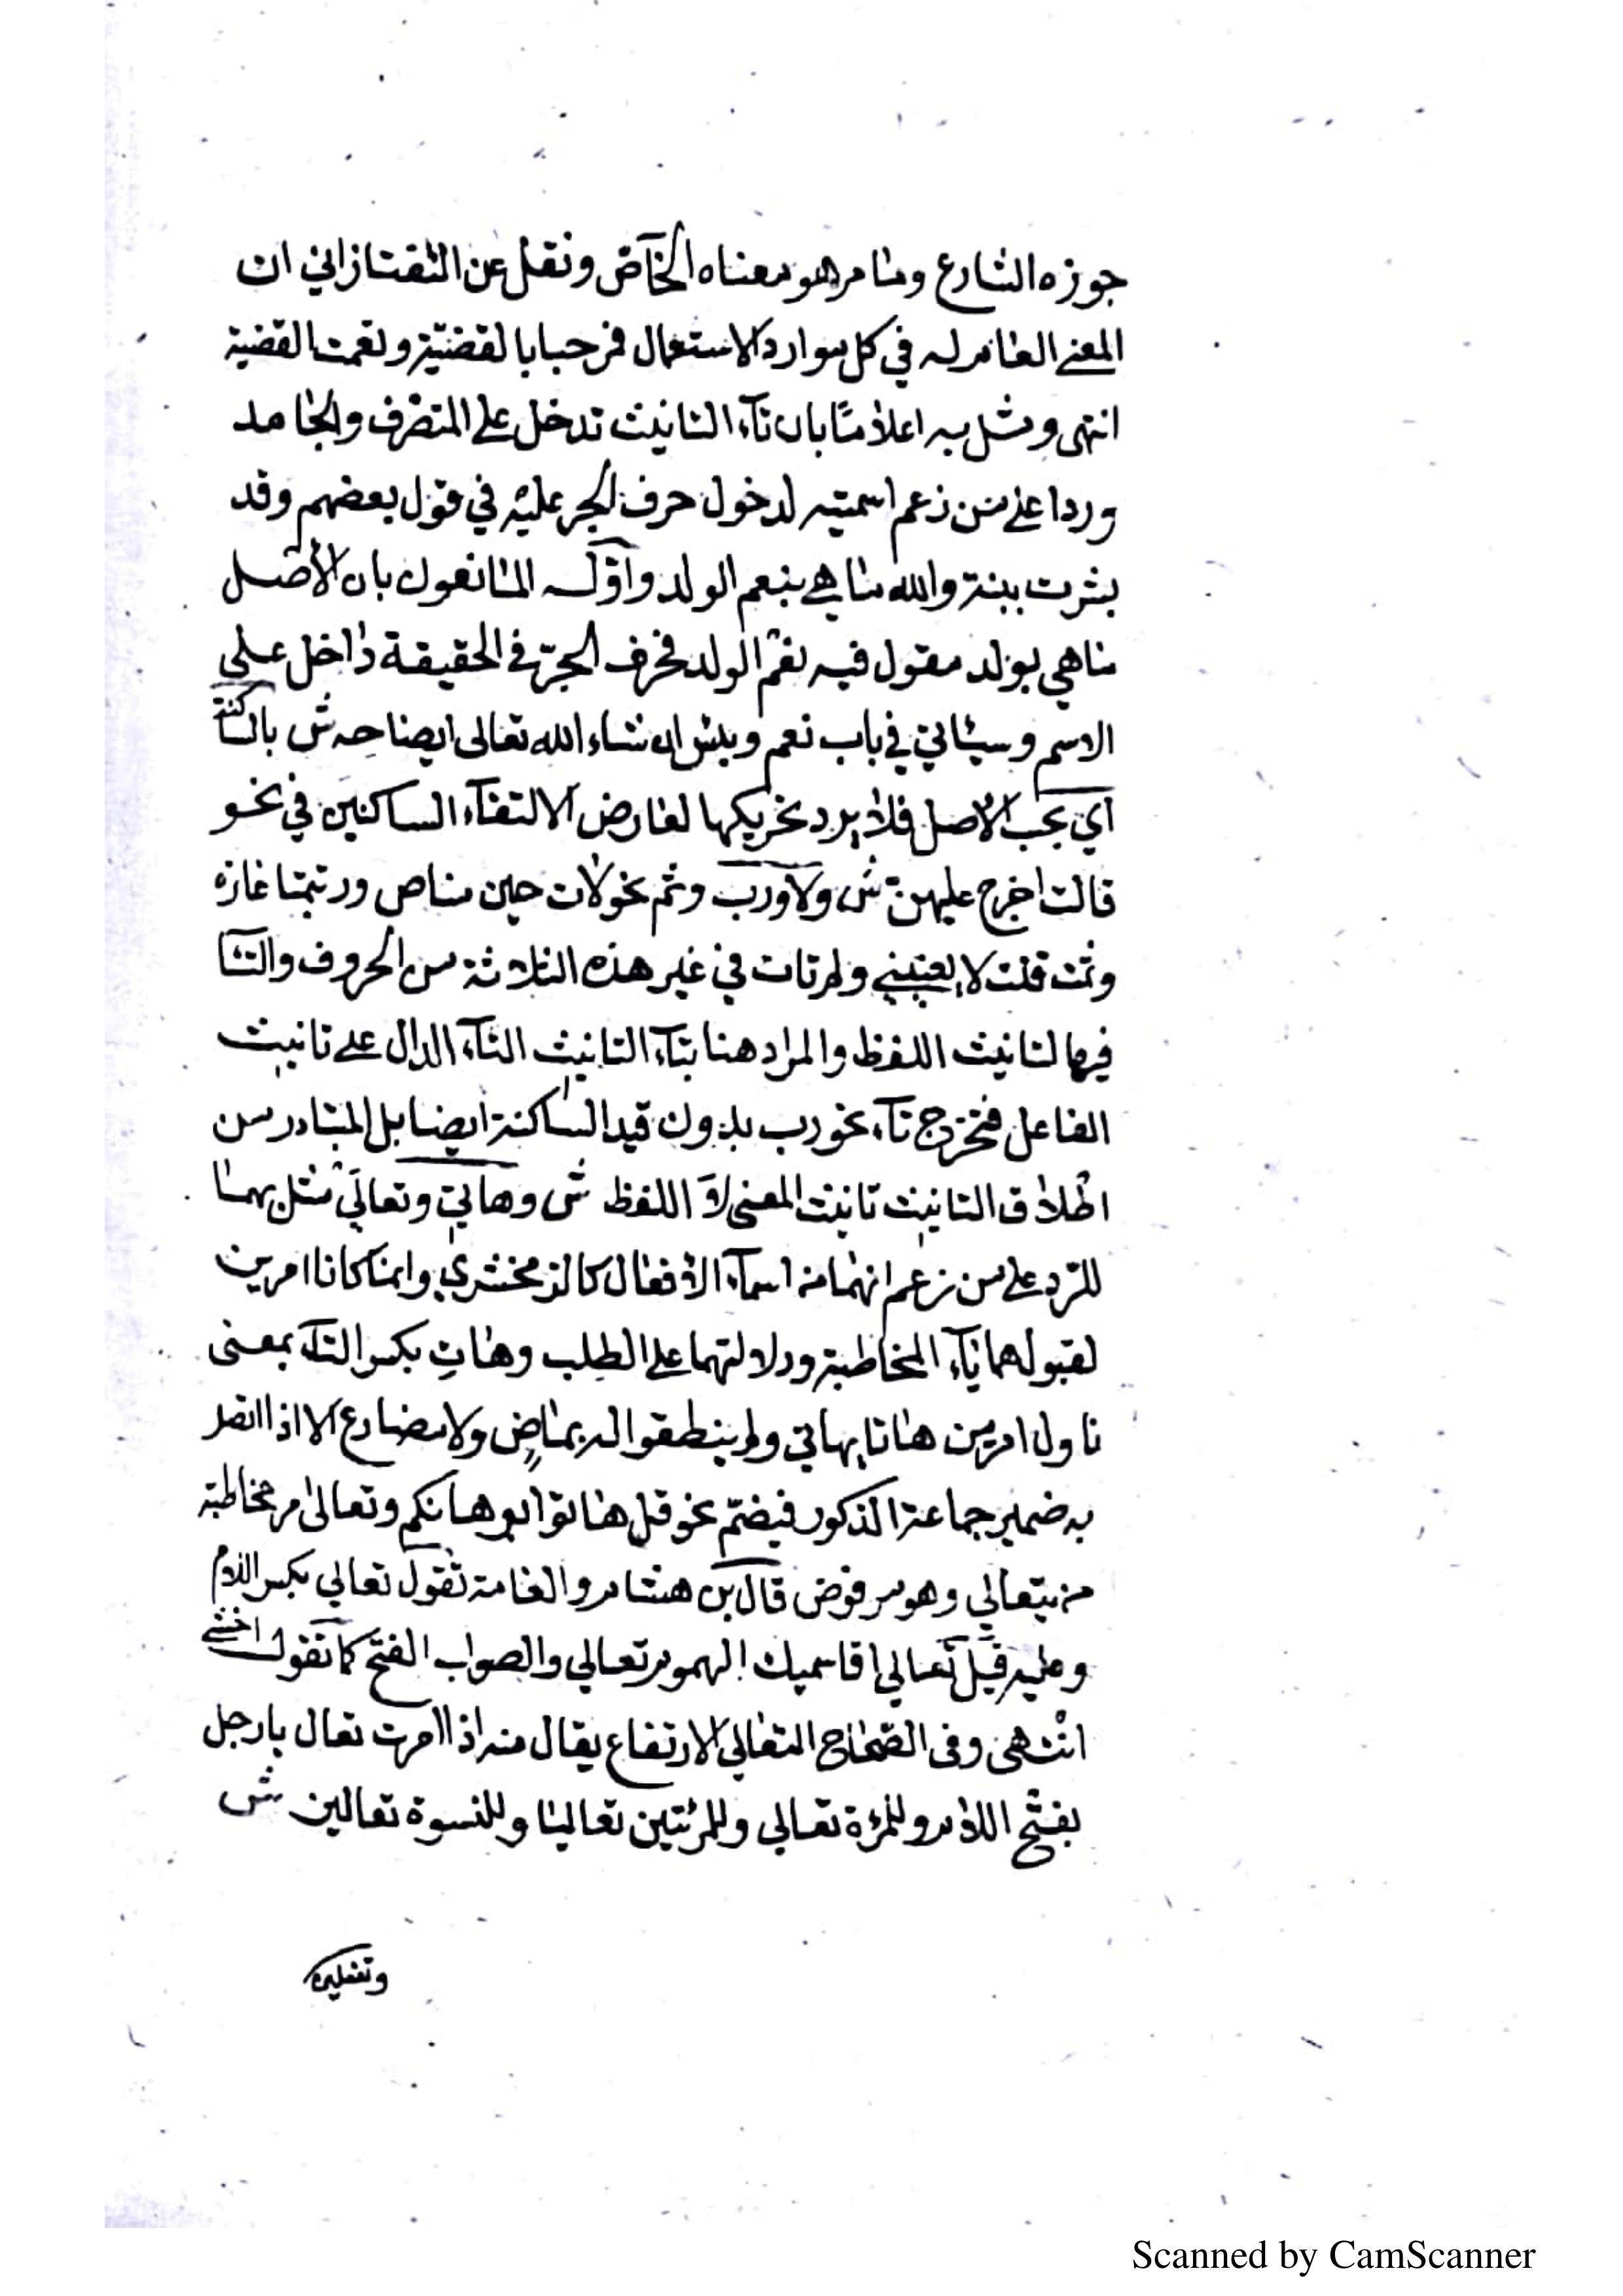 جوزه الشارع وما مر هو معناه الخاص ونقل عن التفتازاني ان
المعنى العام له في كل موارد الاستعمال فمرحبا بالقضية ونعمت القضية
انتهى ومثل به اعلاما بان تآء التانيث تدخل على المتصرف والجامد
وردا على من زعم اسميته لدخول حرف الجر عليه في قول بعضهم وقد
بشرت ببنت والله ما هي بنعم الولد واوله المانعون بان الأصل
ما هي بولد مقول فيه نعم الولد فحرف الجر في الحقيقة داخل على
الاسم وسياتي في باب نعم وبئس ان شاء الله تعالى ايضاحه ش بالساكنة
اي بحسب الاصل فلا يرد تحريكها لعارض الالتقآء الساكنين في نحو
قالت اخرج عليهن ش ولا ورب وثم نحو لات حين مناص وربتما غارة
وثمت قلت لا يعنيني ولم تات في غير هذه الثلاثة من الحروف والتا
فيها لتانيث اللفظ والمراد هنا بتآء التانيث التآء الدال على تانيث
الفاعل فتخرج تآء نحو رب بدون قيد الساكنة ايضا بل المتبادر من
اطلاق التانيث تانيث المعنى لا اللفظ ش وهاتي وتعالي مثل بهما
للرد على من زعم انهما من اسمآء الأفعال كالزمخشري وانما كانا امرين
لقبولهما يآء المخاطبة ودلالتهما على الطلب وهات بكسر التآء بمعنى
ناول امر من هاتا يهاتي ولم ينطقوا له بماض ولا مضارع الا اذا اتصل
به ضمير جماعة الذكور فيضم نحو قل هاتوا برهانكم وتعالى امر مخاطبة
من يتعالي وهو مرفوض قال بن هشام والعامة تقول تعالي بكسر اللام
وعليه قيل تعالي اقاسمك الهموم تعالي والصواب الفتح كما تقول اخشي
انتهى وفى الصحاح التعالي الارتفاع يقال منه اذا امرت تعال يا رجل
بفتح اللام وللمرءة تعالي وللمرئتين تعاليا وللنسوة تعالين ش